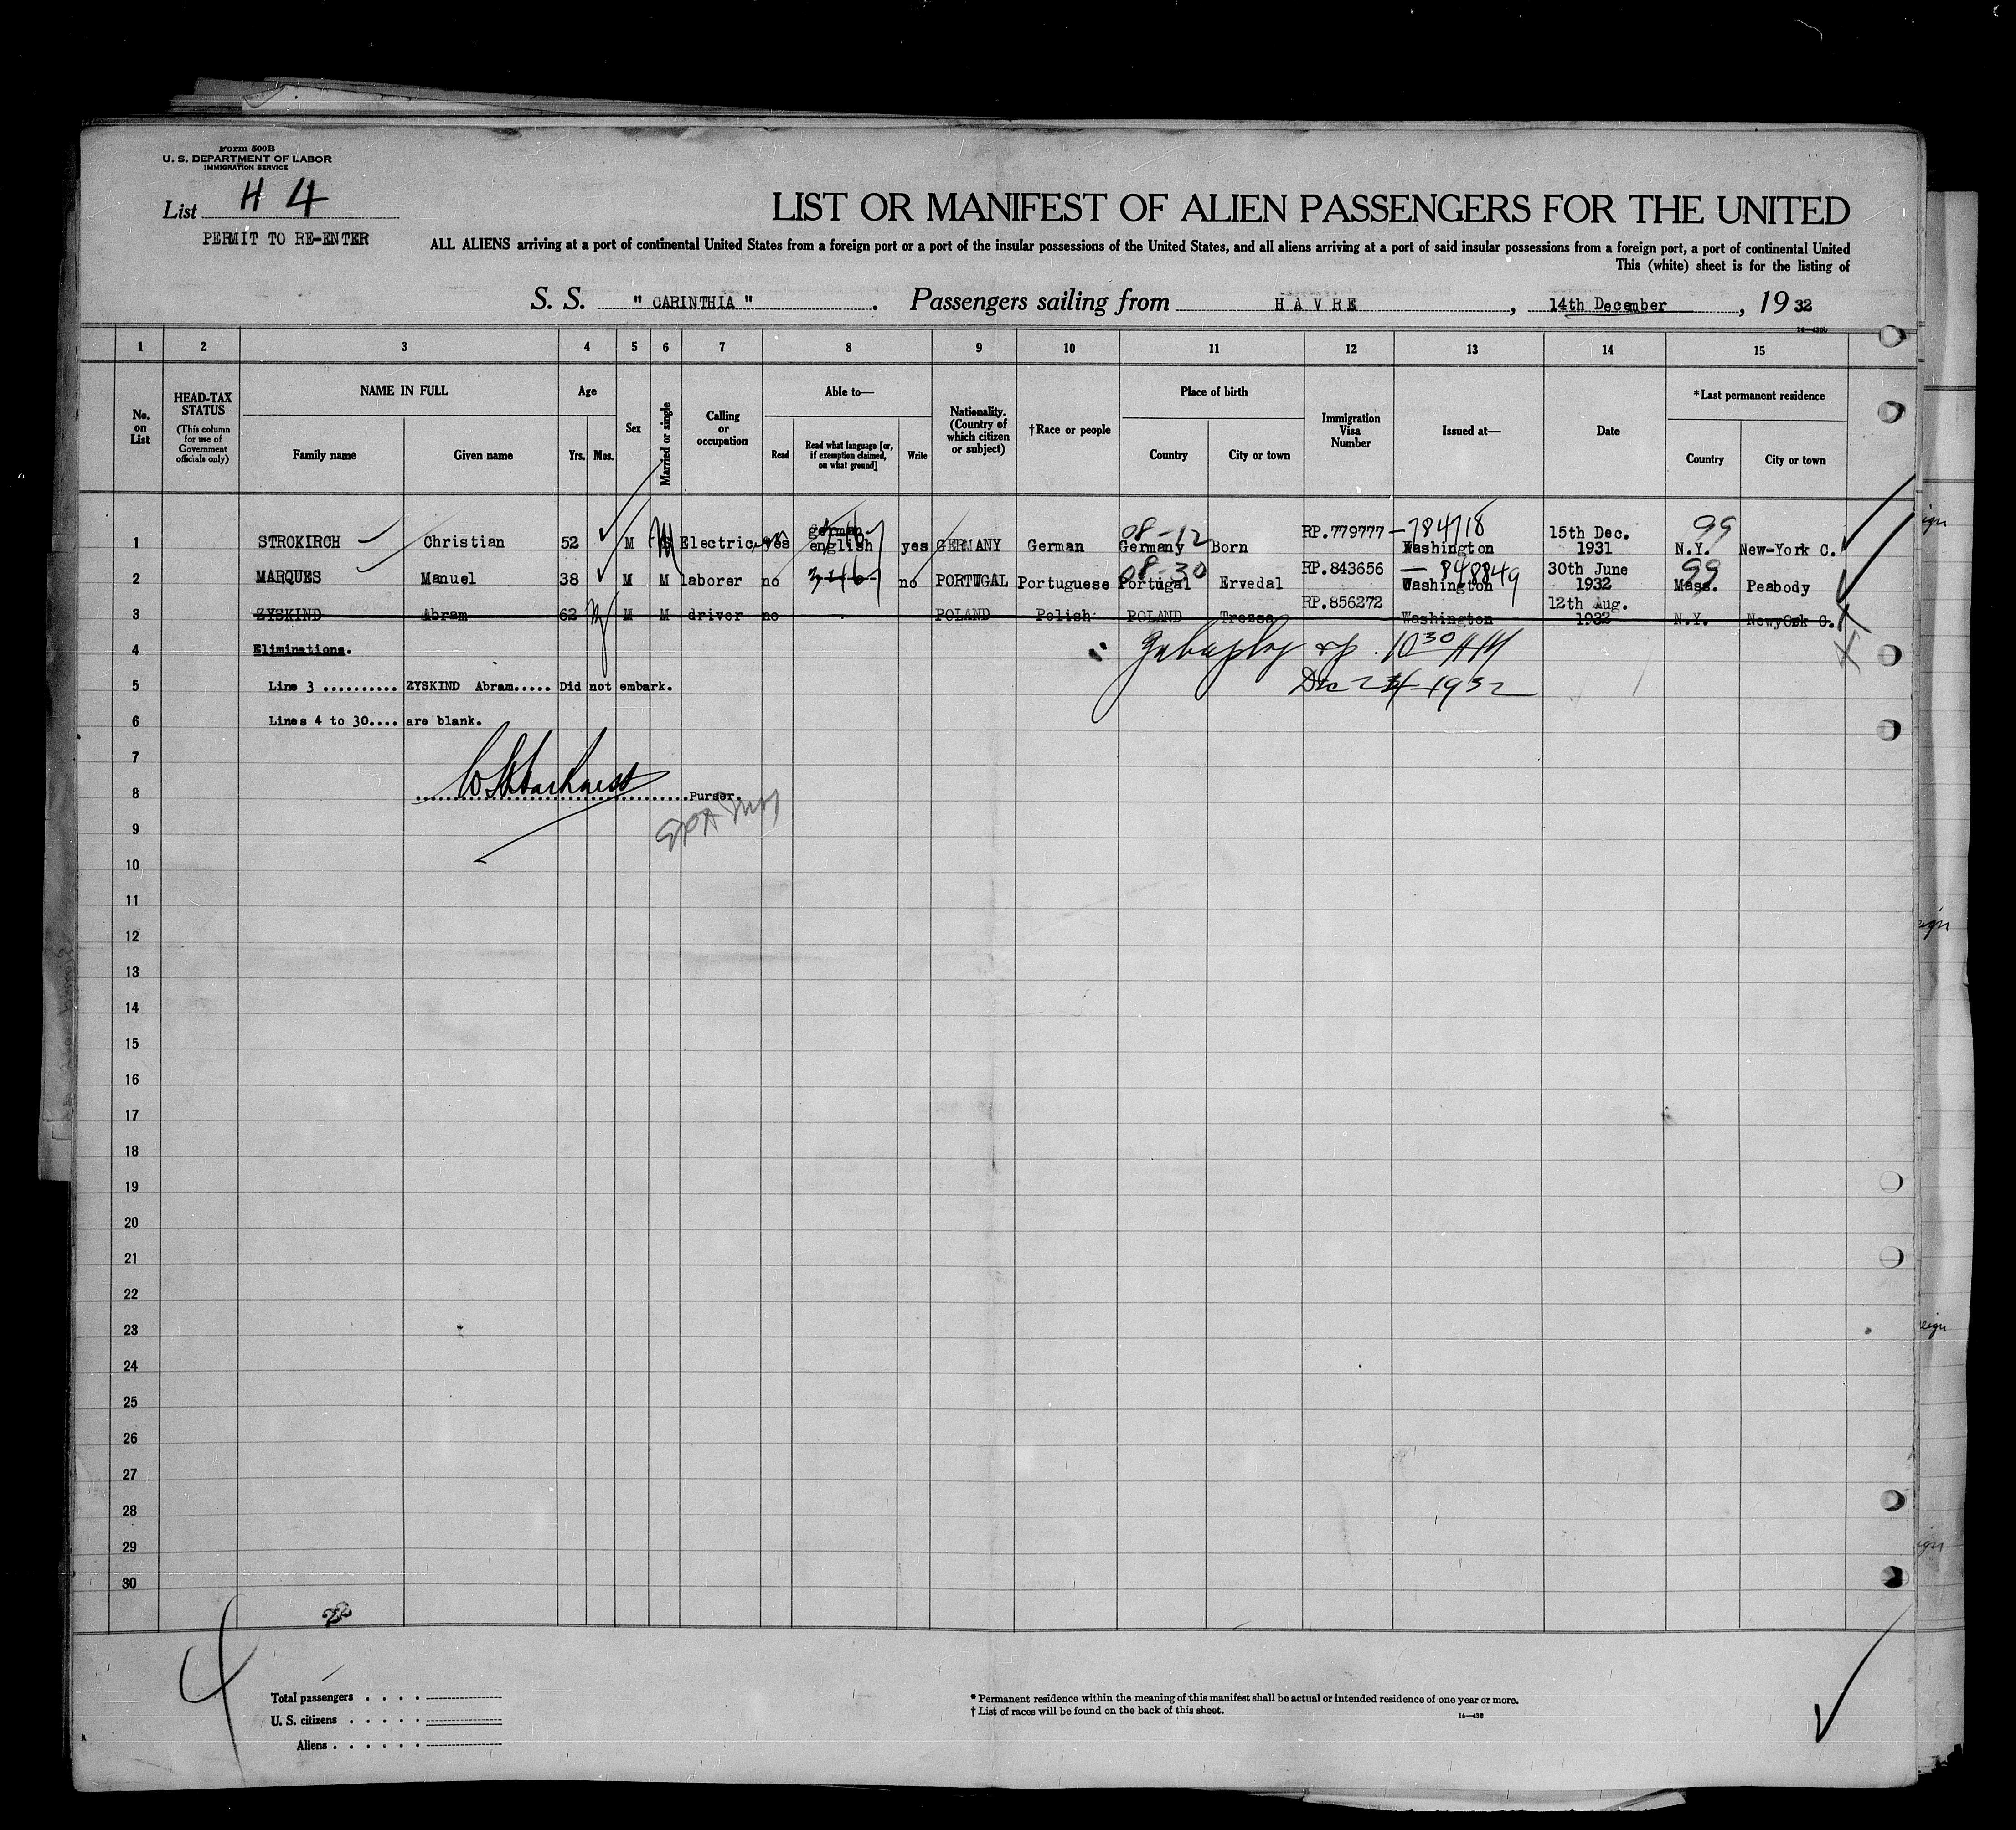 Form 500B
U. S. DEPARTMENT OF LABOR
IMMIGRATION SERVICE
List H 4
PERMIT TO RE-ENTER
LIST OR MANIFEST OF ALIEN PASSENGERS FOR THE UNITED
ALL ALIENS arriving at a port of continental United States from a foreign port or a port of the insular possessions of the United States, and all aliens arriving at a port of said insular possessions from a foreign port, a port of continental United
This (white) sheet is for the listing of
S. S. " CARINTHIA ". Passengers sailing from HAVRE, 14th December, 19 32
1 2 3 4 5 6 7 8 9 10 11 12 13 14 15
No. on List
HEAD-TAX STATUS
(This column for use of Government officials only)
NAME IN FULL
Family name Given name
Age
Yrs. Mos.
Sex
Married or single
Calling or occupation
Able to—
Read
Read what language [or, if exemption claimed, on what ground]
Write
Nationality. (Country of which citizen or subject)
†Race or people
Place of birth
Country City or town
Immigration Visa Number
Issued at—
Date
*Last permanent residence
Country City or town
08-12 RP.779777 -784718 15th Dec. 99
1 STROKIRCH Christian 52 M S M Electric. yes german english yes GERMANY German Germany Born Washington 1931 N.Y. New-York C.
08-30 RP.843656 - 848849 30th June 99
2 MARQUES Manuel 38 M M laborer no no PORTUGAL Portuguese Portugal Ervedal Washington 1932 Mass. Peabody
RP.856272 12th Aug.
3 ZYSKIND Abram 62 M M driver no POLAND Polish POLAND Trozsa Washington 1932 N.Y. NewyOrk C.
4 Eliminations. 10 30 AM
5 Line 3 .......... ZYSKIND Abram..... Did not embark. Dec 24 1932
6 Lines 4 to 30.... are blank.
7
8 Purser.
9
10
11
12
13
14
15
16
17
18
19
20
21
22
23
24
25
26
27
28
29
30
4
Total passengers . . . .
U. S. citizens . . . . .
Aliens . . . . . .
* Permanent residence within the meaning of this manifest shall be actual or intended residence of one year or more.
† List of races will be found on the back of this sheet.
14—430